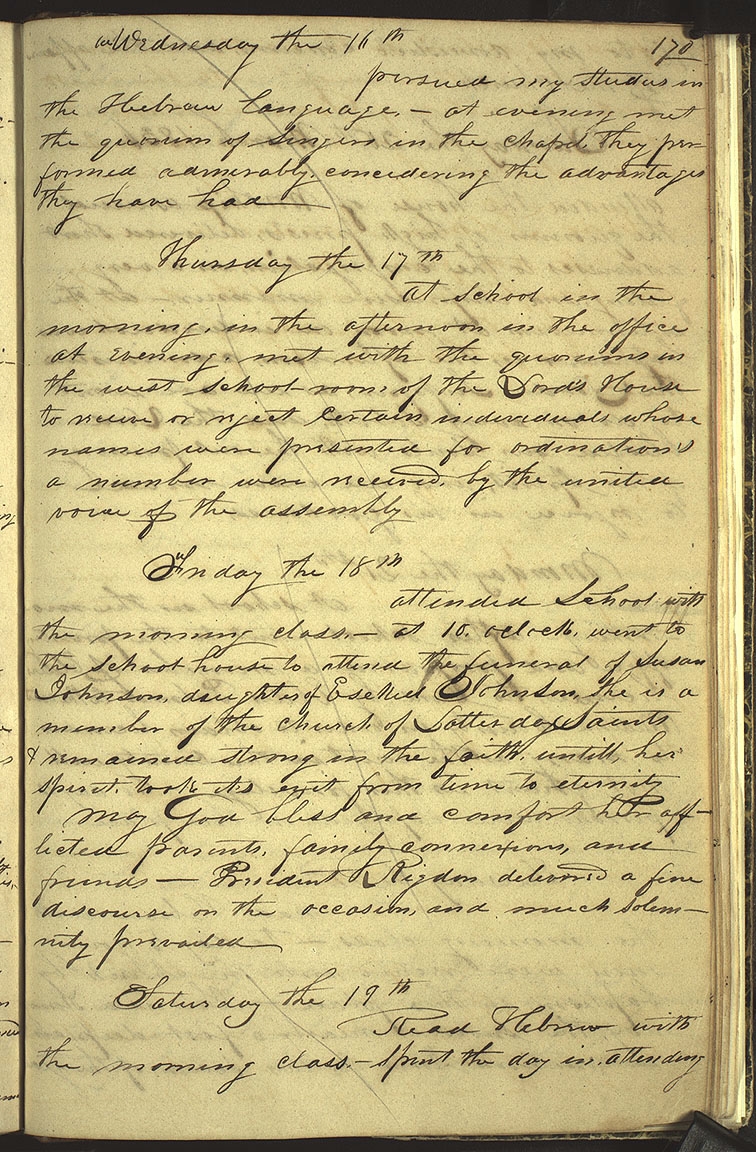 Wednesday the 16th 170
persued my studies in
the Hebrew language. — at evening met
the quorum of singers in the chapel, they per-
formed admirably, concidering the advantages
they have had
Thursday the 17th
At school in the
morning, in the afternoon in the office
at evening, met with the quorums in
the west school-room of the Lord's House
to receive or reject certain individuals whose
names were presented for ordination's
a number were received, by the united
voice of the assembly
Friday the 18th
attended School with
the morning class. — at 10. oclock, went to
the school house to attend the funeral of Susan
Johnson, daughter of Esekiel Johnson, she is a
member of the church of Latter day Saints
& remained strong in the faith, untill, her
spirit, took its exit from time to eternity
May God bless and comfort her aff-
licted parents, family connexions, and
friends — President Rigdon delivered a fine
discourse on the occasion, and much solem-
nity prevailed
Saturday the 19th
Read Hebrew with
the morning class. — spent the day in, attending